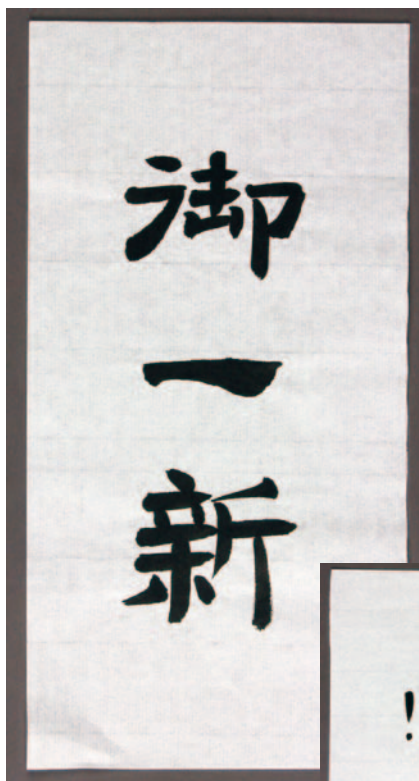 御一新
!